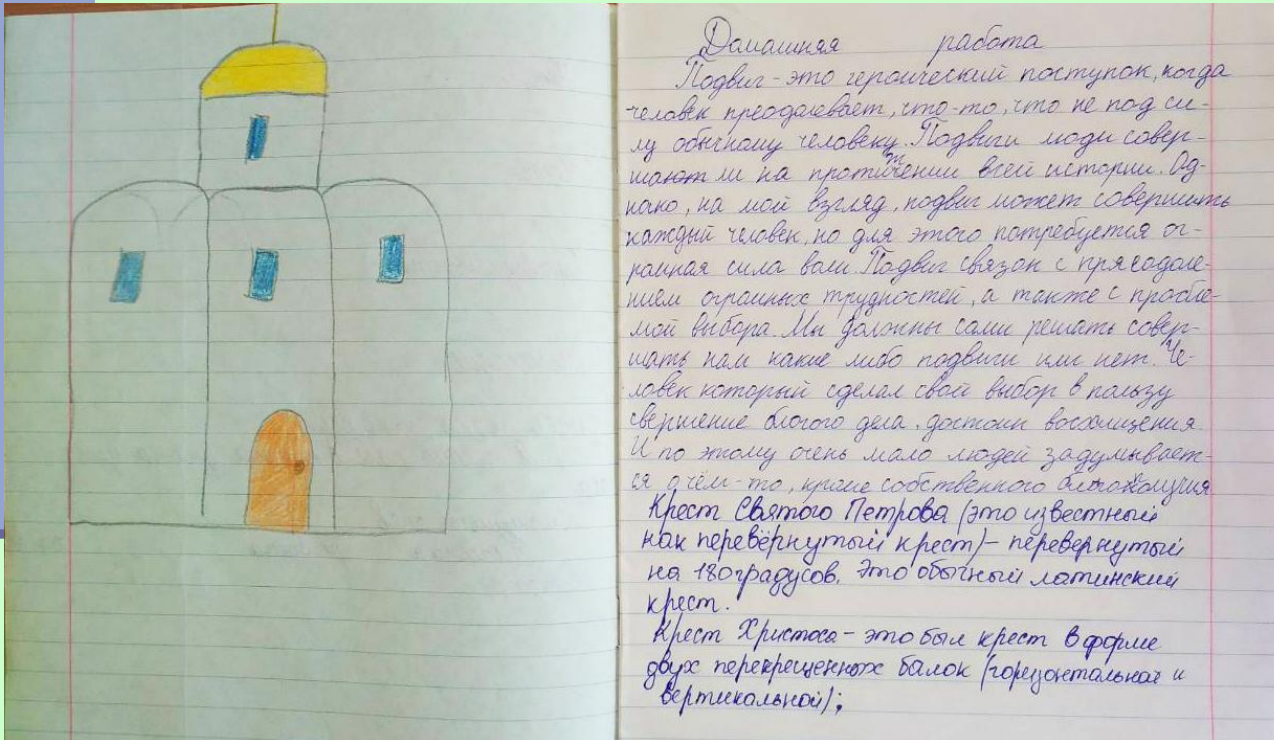 Домашняя работа
Подвиг - это героический поступок, когда
человек преодолевает, что-то, что не под си-
лу обычному человеку. Подвиги люди совер-
шают ли на протитчении всей истории. Од-
нако, на мой взгляд, подвиг может совершить
каждый человек, но для этого потребуется ог-
ромная сила воли. Подвиг связан с прясодоле-
нием огромных трудностей, а также с пробле-
мой выбора. Мы должны сами решать совер-
шать нам какие либо подвиги или нет. Че-
ловек который сделал свой выбор в пользу
свершение благого дела, достоин восхищения
И по этому очень мало людей задумывает-
ся о чём-то, кроме собственного благополучия
Крест Святого Петрова (это известный
как перевёрнутый крест) - перевернутый
на 180 градусов. Это обычный латинский
крест.
Крест Христоса - это был крест в форме
двух перекрещенных балок (горизонтальной и
вертикальной);